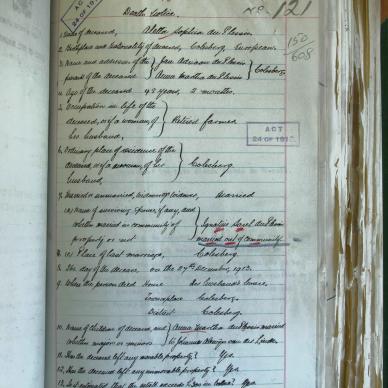 Death Notice.
No. 121
150
608
ACT
24 OF 19
1. Name of deceased, Aletta Sophia du Plessis
2. Birthplace and nationality of deceased, Colesberg European.
3. Names and addresses of the parents of the deceased } Jan Adriaan du Plessis Anna Martha du Plessis } Colesberg
4. Age of the deceased 42 years, 2 months.
5. Occupation in life of the
deceased, or if a woman, of
her husband, } Retired farmer
ACT
24 OF 19
6. Ordinary place of residence of the
deceased, or if a woman, of her
husband, } Colesberg
7. Married or unmarried, widower or widow, Married
(a) Name of surviving spouse if any, and
whether married in community of
property or not } Ignatius du Plessis
married out of community
(c) Place of last marriage, Colesberg
8. The day of the decease on the 27th December, 1913.
9. Where the person died House her husband's house,
Town or place Colesberg.
District Colesberg.
10. Names of children of deceased, and
whether majors or minors } Anna Martha du Plessis married
to Johannes van der Linde
11. Has the deceased left any movable property? Yes
12. Has deceased left any immovable property? Yes
13. Is it estimated that the estate exceeds £ in value? Yes